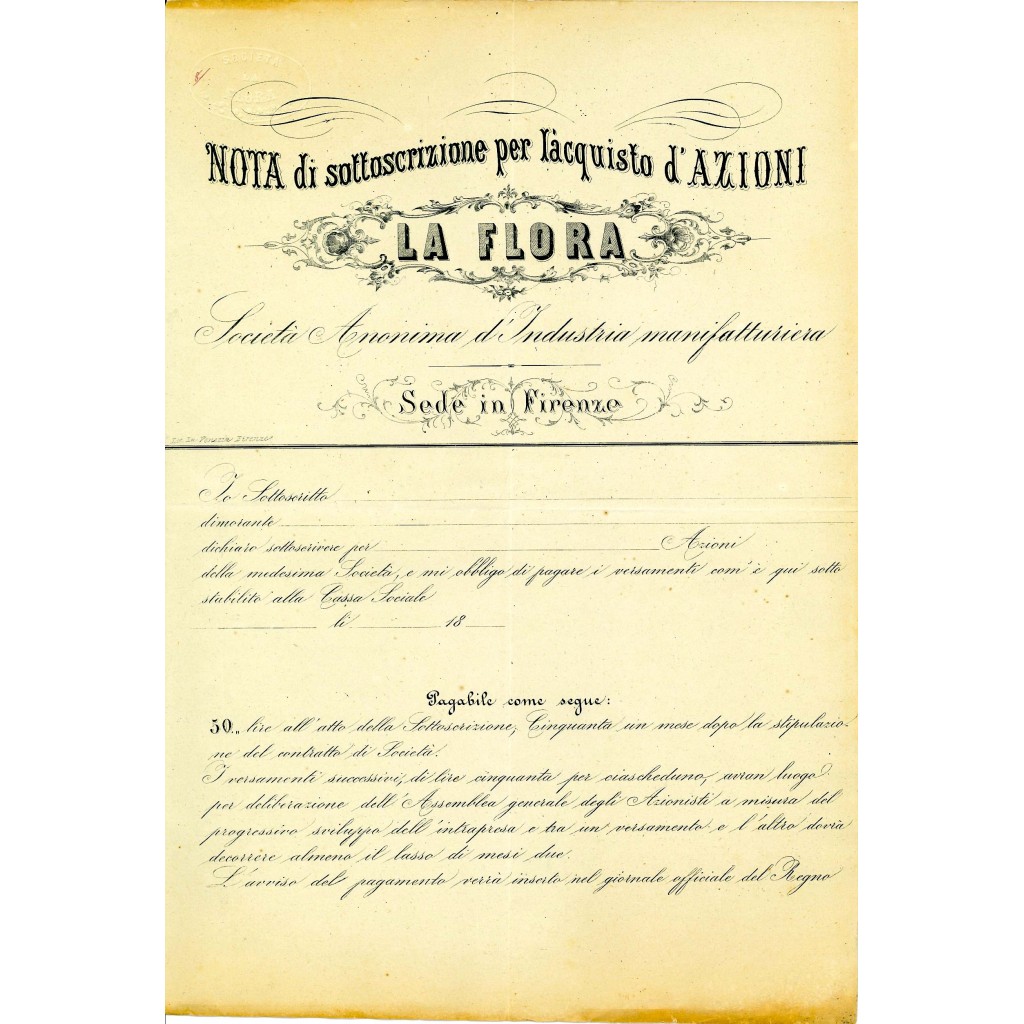 NOTA di sottoscrizione per l'acquisto d'AZIONI
LA FLORA
Società Anonima d'Industria manifatturiera
Sede in Firenze
Io Sottoscritto
dimorante
dichiaro sottoscrivere per Azioni
della medesima Società, e mi obbligo di pagare i versamenti com'è qui sotto
stabilito alla Cassa Sociale
li 18
Pagabile come segue:
50.,, lire all'atto della Sottoscrizione, Cinquanta un mese dopo la stipulazio-
ne del contratto di Società.
I versamenti successivi, di lire cinquanta per ciascheduno, avran luogo
per deliberazione dell'Assemblea generale degli Azionisti a misura del
progressivo sviluppo dell'intrapresa e tra un versamento e l'altro dovrà
decorrere almeno il lasso di mesi due.
L'avviso del pagamento verrà inserto nel giornale officiale del Regno